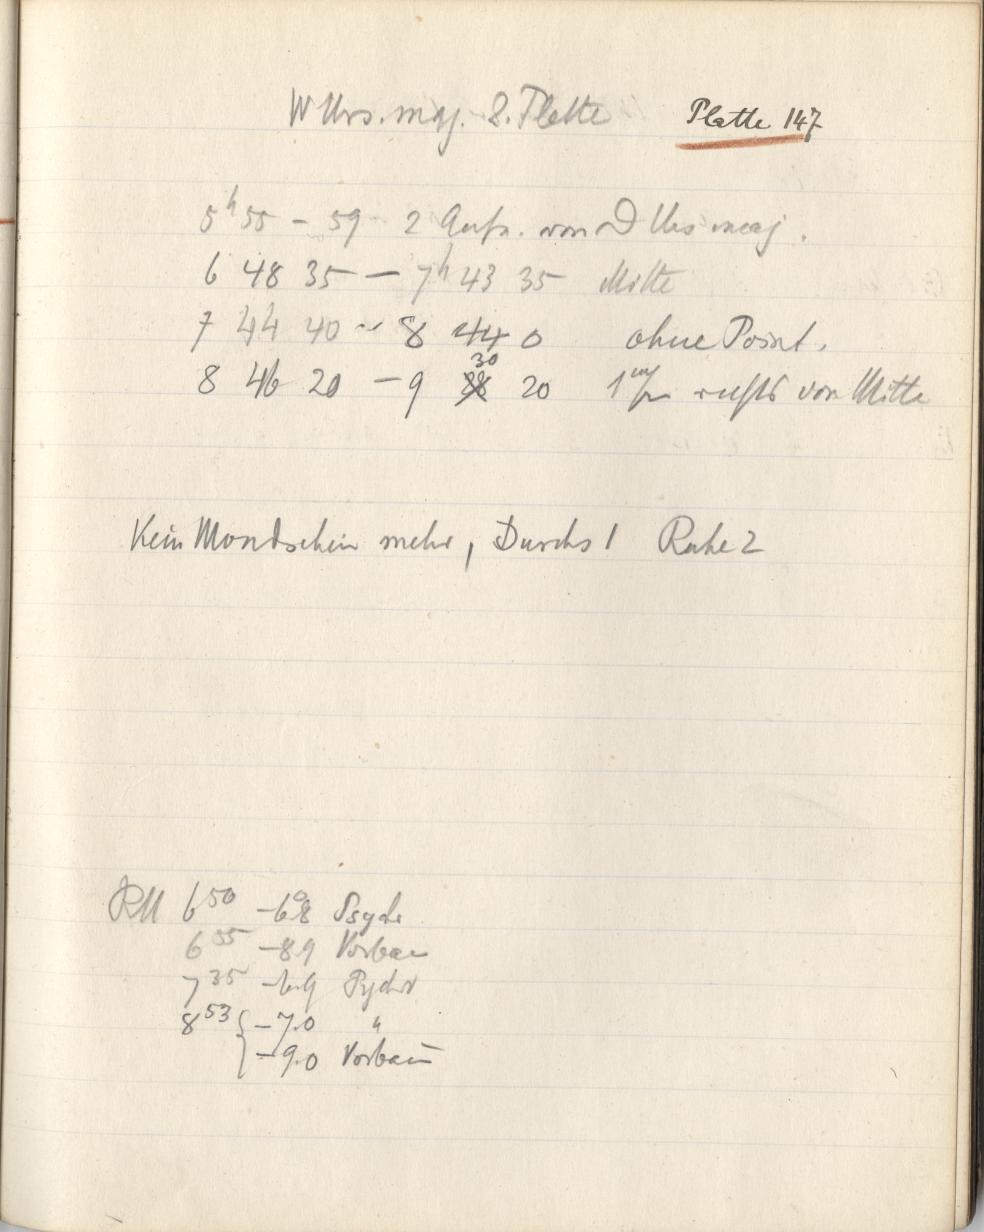 W Urs. maj. 2. Platte Platte 147
5h 55 - 59 2 Aufn. von D Urs maj.
6 48 35 — 7h 43 35 Mitte
7 44 40 - 8 44 0 ohne Point.
8 46 20 - 9 30 20 1 m/m rechts von Mitte
Kein Mondschein mehr, Durchs 1 Ruhe 2
6 50 -6.8 Psychr
6 55 -8.9 Vorbau
7 35 -6.9 Psychr
8 53 { -7.0 "
-9.0 Vorbau